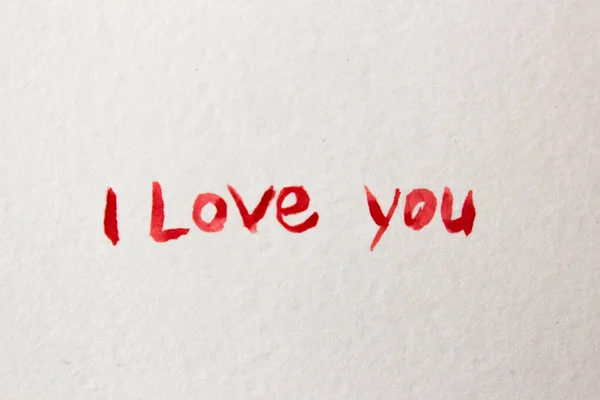 I Love you